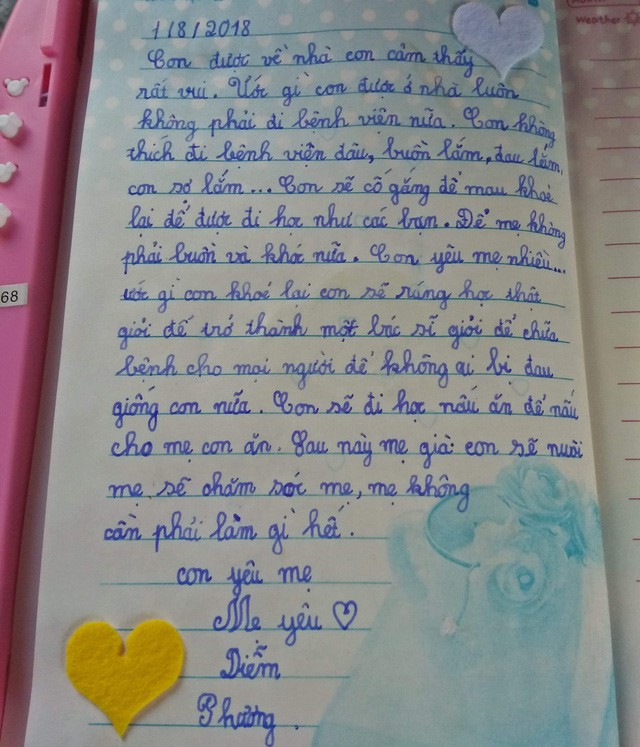 1/8/2018
Con được về nhà con cảm thấy
rất vui. Ước gì con được ở nhà luôn
không phải đi bệnh viện nữa. Con không
thích đi bệnh viện đâu, buồn lắm, đau lắm,
con sợ lắm... Con sẽ cố gắng để mau khoẻ
lại để được đi học như các bạn. Để mẹ không
phải buồn và khóc nữa. Con yêu mẹ nhiều...
ước gì con khoẻ lại con sẽ ráng học thật
giỏi để trở thành một bác sĩ giỏi để chữa
bệnh cho mọi người để không ai bị đau
giống con nữa. Con sẽ đi học nấu ăn để nấu
cho mẹ con ăn. Sau này mẹ già con sẽ nuôi
mẹ sẽ chăm sóc mẹ, mẹ không
cần phải làm gì hết.
con yêu mẹ
Mẹ yêu ♡
Diễm
Phương.
Weather
68